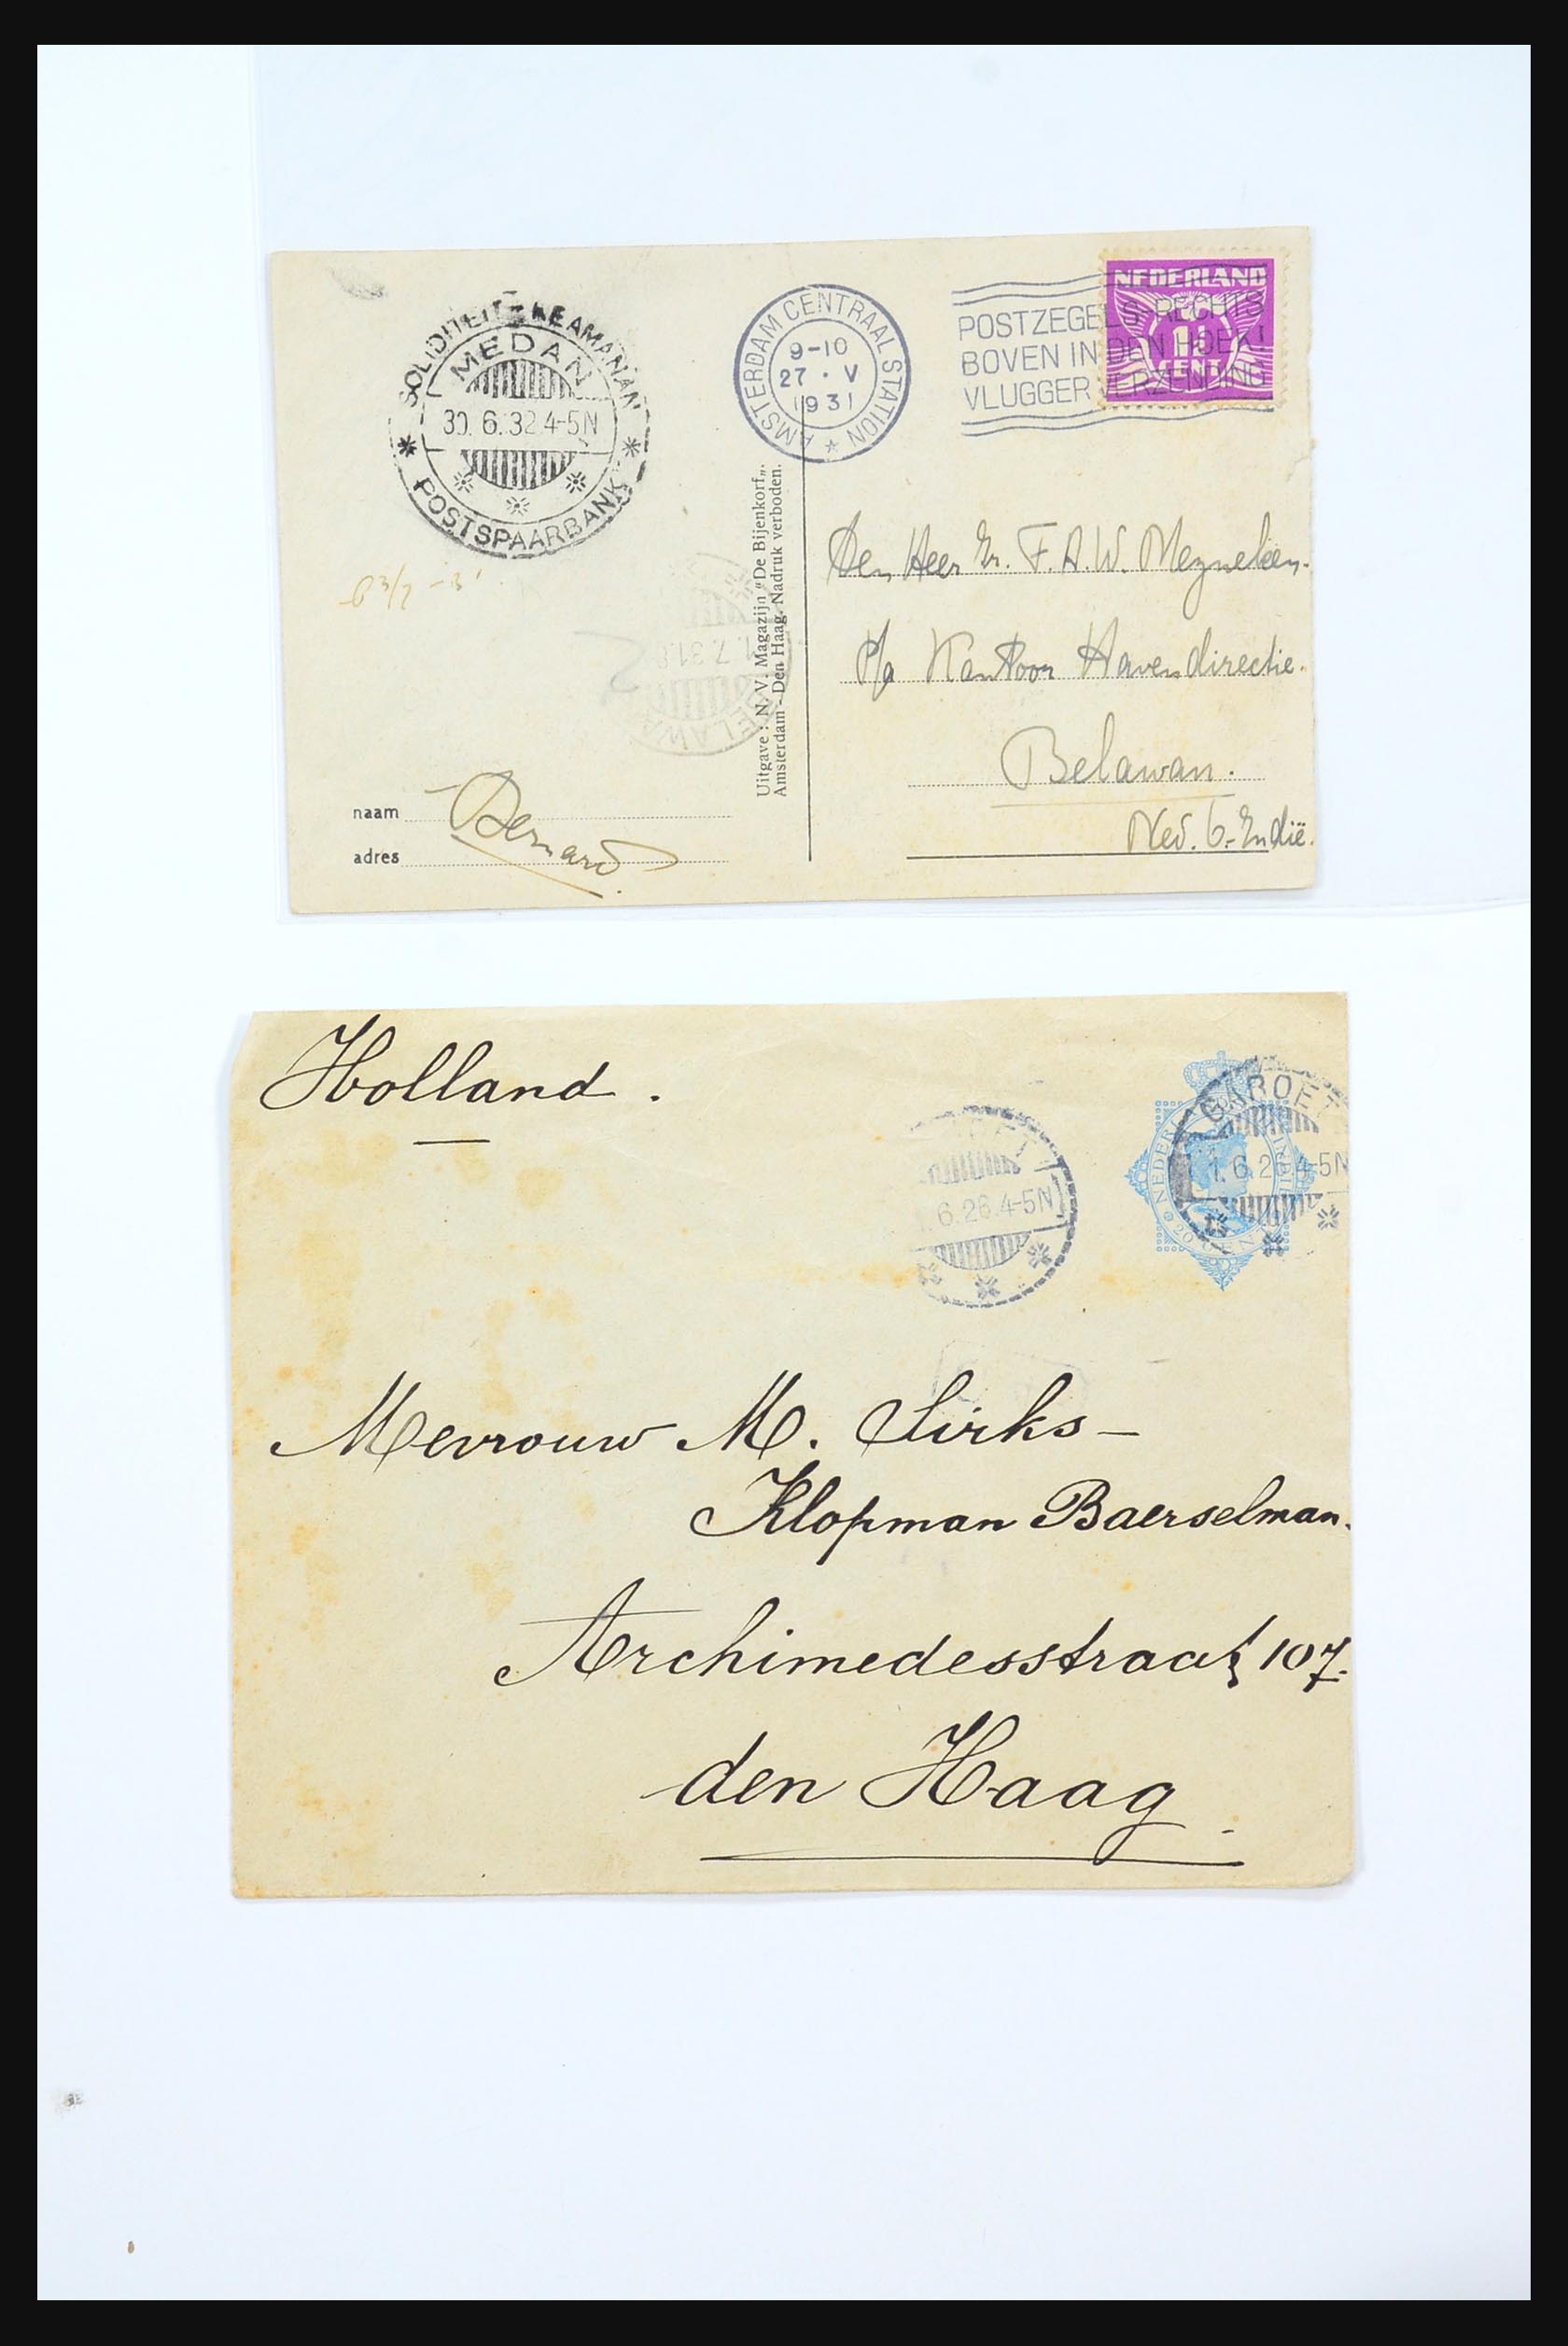 SOLIDITEIT - KEAMANAN
MEDAN
30.6.32.4-5N
POSTSPAARBANK
AMSTERDAM CENTRAAL STATION
9-10
27 · V
1931
POSTZEGELS RECHTS
BOVEN IN DEN HOEK!
VLUGGER VERZENDING
NEDERLAND
Uitgave: N. V. Magazijn "De Bijenkorf".
Amsterdam - Den Haag. Nadruk verboden.
Den Heer Gr. F. A. W.
P/a Kantoor Havendirectie.
Belawan.
Ned. O.-Indië.
naam
Bernard
adres
Holland.
6.26.4-5N
GAROET
1.6.26.4-5N
Mevrouw M. Sirks-
Klopman Baerselman.
Archimedesstraat 107.
den Haag.